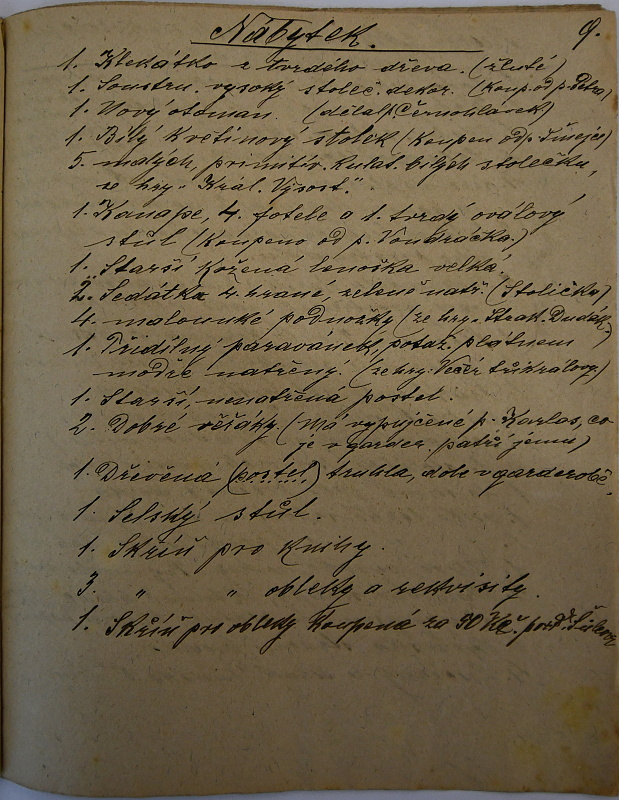 Nábytek. 9.
1. Klekátko z tvrdého dřeva. (žluté)
1. Soustru. vysoký stoleč. dekor. (koup. od p. Petra)
1. Nový otoman. (dělal p. Černohlávek)
1. Bílý květinový stolek (koupen od p.
5. malých, primitiv. kulat. bílých stolečku,
ze hry „Král. Výsost".
1. Kanape, 4. fotele a 1. tvrdý oválový
stůl (koupeno od p. Vondráčka.)
1. Starší kožená lenoška velká.
2. Sedátka 4. hrané, zeleně natř. (Stoličky)
4. malounké podnožky (ze hry. Strak. Dudák.)
1. Třídílný paravanek, potaž. plátnem
modře natřený. (ze hry: Večer tříkrálový.)
1. Starší, nenatřená postel.
2. Dobré věšáky. (má vypůjčené p. Karlas, co
je v garder. patří jemu)
1. Dřevěná (postel) truhla, dole v garderobě.
1. Selský stůl.
1. Skříň pro knihy.
3. „ „ obleky a rekvisity.
1. Skříň pro obleky koupená za 50 Kč.